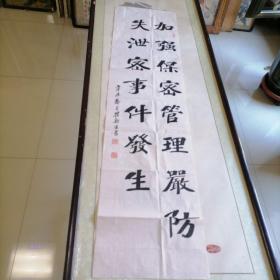 加强保密管理嚴防
失泄密事件發生